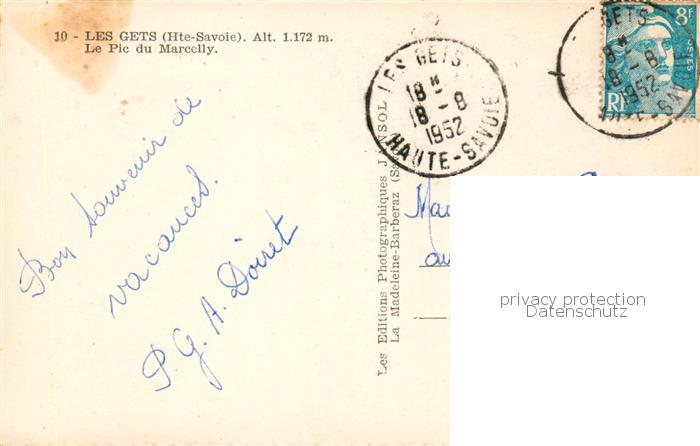 10 - LES GETS (Hte-Savoie). Alt. 1.172 m.
Le Pic du Marcelly.
LES GETS
18 H
18 - 8
1952
HAUTE-SAVOIE
GETS
18 - 8
1952
SAVOIE
8F
POSTES
RF
Bon souvenir de
vacances.
P. G. A. Doiret
Les Editions Photographiques JANSOL
La Madeleine-Barberaz
privacy protection
Datenschutz